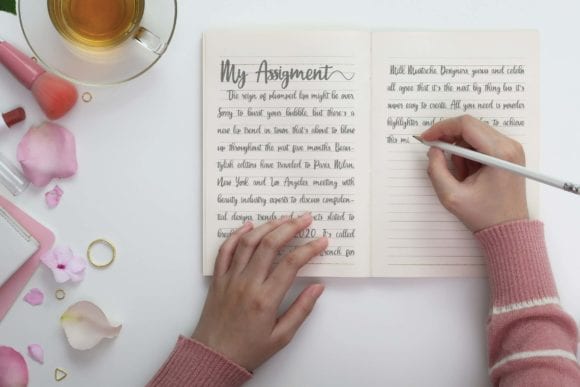 My Assigment
The reign of plumped lips might be over.
Sorry to burst your bubble, but there's
a new lip trend in town that's about to blow
up throughout the past five months, Beau-
tylish editors have traveled to Paris, Milan,
New York and Los Angeles meeting with
beauty industry experts to discuss confiden-
tial designs, trends and slated to
2020. It's called
french for
Milk Mustache. Designers, gurus and celebs
all agree that it's the next big thing but it's
super easy to create. All you need is powder
highlighter and to achieve
this mi